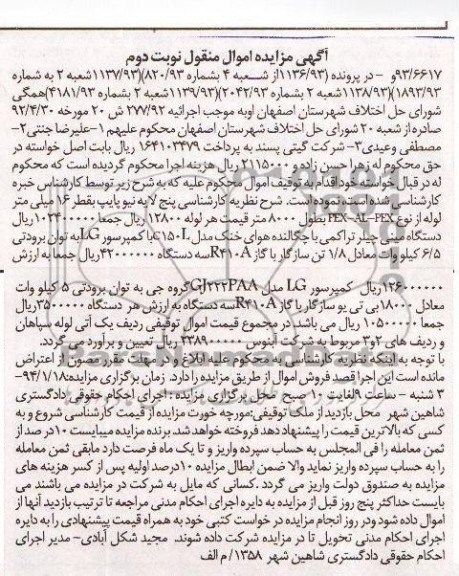 آگهی مزایده اموال منقول نوبت دوم
۹۳/۶۶۱۷و - در پرونده (۱۱۳۶/۹۳از شــــعه ۴ بشماره ۸۲۰/۹۳)(۱۱۳۷/۹۳شعبه ۲ به شماره
۱۸۹۳/۹۳)(۱۱۳۸/۹۳شعبه ۲ بشماره ۲۰۴۲/۹۳)(۱۱۳۹/۹۳شعبه ۲ بشماره ۴۱۸۱/۹۳)همگی
شورای حل اختلاف شهرستان اصفهان اوبه موجب اجرائیه ۲۷۷/۹۲ ش ۲۰ مورخه ۹۲/۴/۳۰
صادره از شعبه ۲۰ شورای حل اختلاف شهرستان اصفهان محکوم علیهم ۱-علیرضا جنتی۲-
مصطفی وعیدی۳- شرکت گیتی پسند به پرداخت ۱۶۴۱۰۳۴۷۹ ریال بابت اصل خواسته در
حق محکوم له زهرا حسن زاده و ۲۱۱۵۰۰۰ ریال هزینه اجرا محکوم گردیده است که محکوم
له در قبال خواسته خود اقدام به توقیف اموال محکوم علیه که به شرح زیر توسط کارشناس خبره
کارشناسی شده است، نموده است. شرح نظریه کارشناسی پنج لایه نیو پایپ بقطر ۱۶ میلی متر
لوله از نوع PEX-AL-PEX بطول ۸۰۰۰ متر قیمت هر لوله ۱۲۸۰۰ ریال جمعا ۱۰۲۴۰۰۰۰۰ ریال
دستگاه مینی چیلر تراکمی با چگالنده هوای خنک مدل C۱۵۰Lبا کمپرسور LGبه توان برودتی
۶/۵ کیلو وات معادل ۱/۸ تن سازگار با گاز R۴۱۰Aسه دستگاه ۴۲۰۰۰۰۰۰ریال جمعا به ارزش
۱۲۶۰۰۰۰۰۰ریال کمپرسور LG مدل GJ۲۲۲PAAگروه جی به توان برودتی ۵ کیلو وات
معادل ۱۸۰۰۰بی تی یو سازگار با گاز R۴۱۰Aسه دستگاه به ارزش هر دستگاه ۳۵۰۰۰۰۰ریال
جمعا ۱۰۵۰۰۰۰۰ ریال می باشد، در مجموع قیمت اموال توقیفی ردیف یک آتی لوله سپاهان
و ردیف های ۲و۳ مربوط به شرکت آبنوس ۲۳۸۹۰۰۰۰۰ ریال تعیین و برآورد می گردد.
با توجه به اینکه نظریه کارشناسی به محکوم علیه ابلاغ و در مهلت مقرر مصون از اعتراض
مانده است این اجرا قصد فروش اموال از طریق مزایده را دارد. زمان برگزاری مزایده:۹۴/۱/۱۸-
۳ شنبه - ساعت ۹لغایت ۱۰ صبح محل برگزاری مزایده : اجرای احکام حقوقی دادگستری
شاهین شهر محل بازدید از ملک توقیفی:مورچه خورت مزایده از قیمت کارشناسی شروع و به
کسی که بالاترین قیمت را پیشنهاد دهد فروخته خواهد شد. برنده مزایده میبایست ۱۰در صد از
ثمن معامله را فی المجلس به حساب سپرده واریز و تا یک ماه فرصت دارد مابقی ثمن معامله
را به حساب سپرده واریز نماید والا ضمن ابطال مزایده ۱۰درصد اولیه پس از کسر هزینه های
مزایده به صندوق دولت واریز می گردد .کسانی که مایل به شرکت در مزایده می باشند می
بایست حداکثر پنج روز قبل از مزایده به دایره اجرای احکام مدنی مراجعه تا ترتیب بازدید آنها از
اموال داده شود ودر روز انجام مزایده در خواست کتبی خود به همراه قیمت پیشنهادی را به دایره
اجرای احکام مدنی تحویل تا در مزایده شرکت داده شوند. مجید شکل آبادی- مدیر اجرای
احکام حقوقی دادگستری شاهین شهر ۱۳۵۸/ م الف